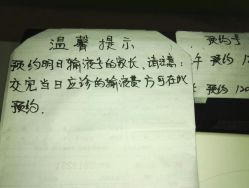 温馨提示
预约明日输液号的家长、请注意:
交完当日应诊的输液费方可在此
预约.
预约号
午 预约 12
预约 120